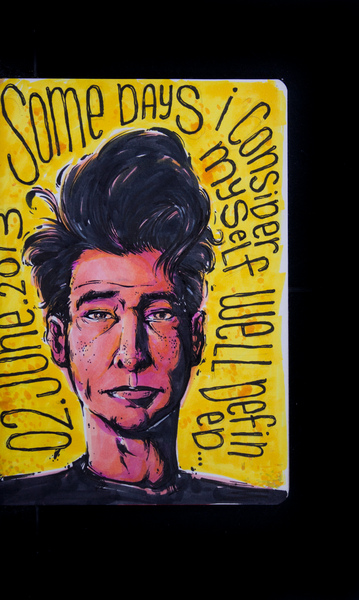 SOME DAYS i CONSiDER
MYSELF WELL DEFiN
ED...
02.JUNE.2013